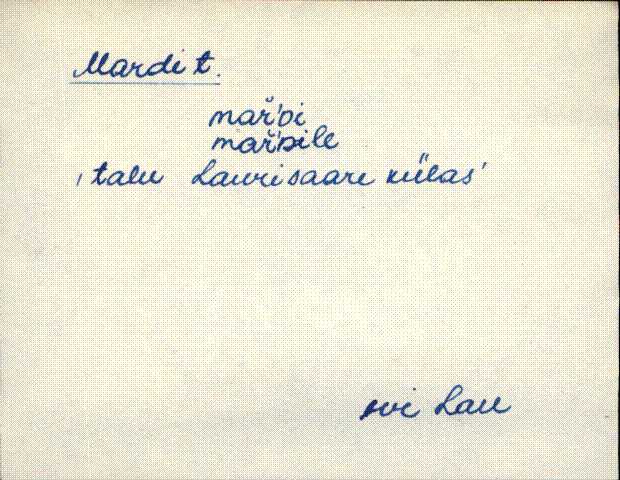 Mardi t.
mar̆'ᴅi
mar̆'ᴅile
'talu Laurisaare külas'
Lau